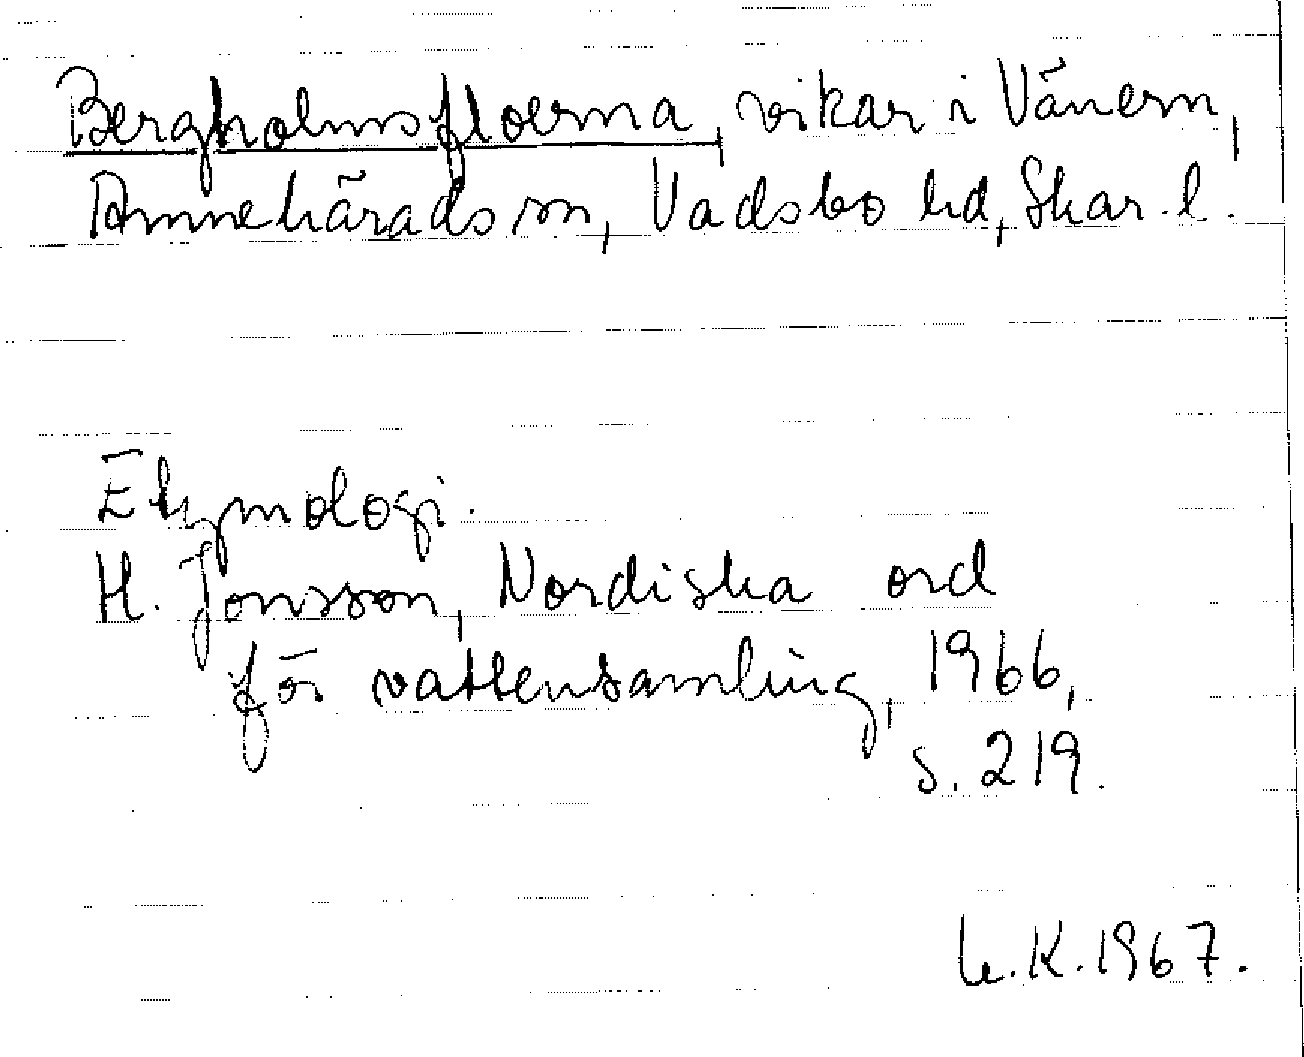 Bergholmsfloerna, vikar i Vänern,
Amnehärads sn, Vadsbo hd, Skar. l.
Etymologi.
H. Jonsson, Nordiska ord
för vattensamling, 1966,
s. 219.
K. 1967.